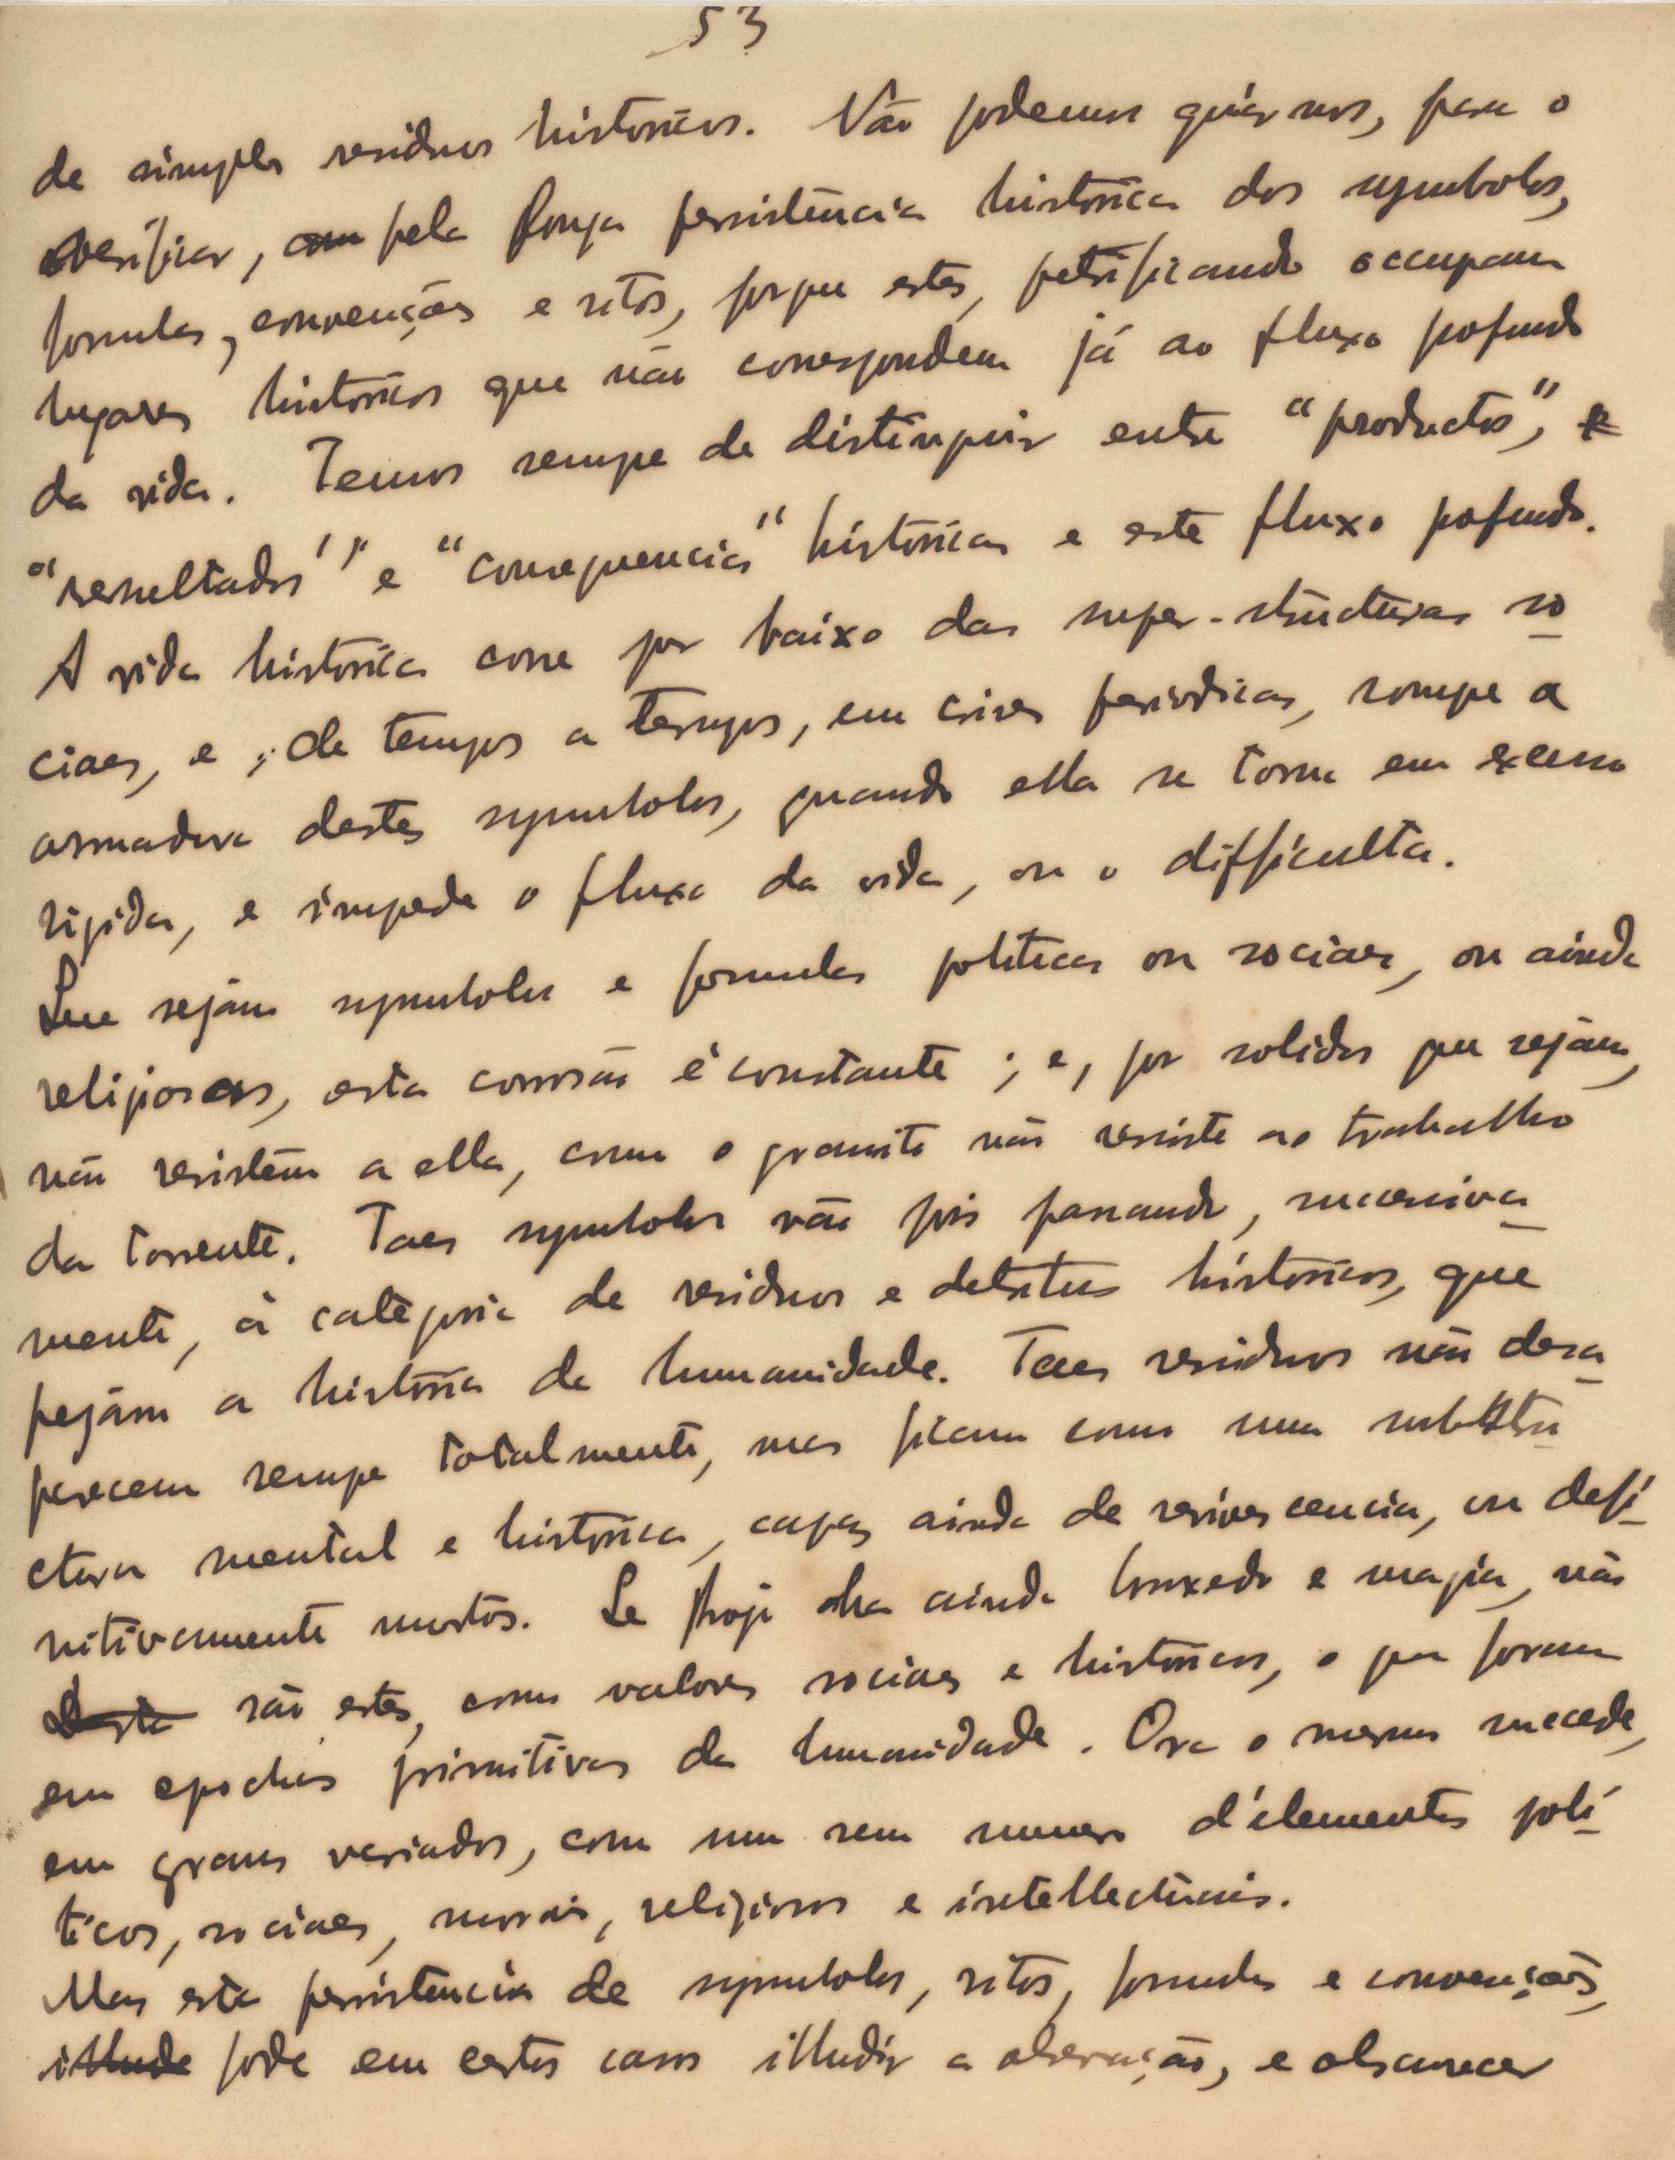 53
de simples residuos historicos. Não podemos guiar nos, para o
verificar, pela longa persistencia historica dos symbolos,
formulas, convenções e ritos, porque estes, petrificando occupam
lugares historicos que não correspondem já ao fluxo profundo
da vida. Temos sempre de distinguir entre "productos",
"resultados" e "consequencias" historicas e este fluxo profundo.
A vida historica corre por baixo das super-structuras so
ciaes, e, de tempos a tempos, em crises periodicas, rompe a
armadura destes symbolos, quando ella se torna em excesso
rigida, e impede o fluxo da vida, ou o difficulta.
Que sejam symbolos e formulas politicas ou sociaes, ou ainda
religiosas, esta corrosão é constante; e, por solidos que sejam,
não resistem a ella, como o granito não resiste ao trabalho
da torrente. Taes symbolos vão pois passando, successiva
mente, á categoria de residuos e detritus historicos, que
pejam a historia da humanidade. Taes residuos não desa
parecem sempre totalmente, mas ficam como uma substru
ctura mental e historica, capaz ainda de reviviscencia, ou defi
nitivamente mortos. Se hoje ha ainda bruxedo e magia, não
são estes, como valores sociaes e historicos, o que foram
em epochas primitivas da humanidade. Ora o mesmo succede,
em graus variados, com um sem numero d'elementos poli
ticos, sociaes, moraes, religiosos e intellectuais.
Mas esta persistencia de symbolos, ritos, formulas e convenções,
illude pode em certos casos illudir a observação, e obscurecer